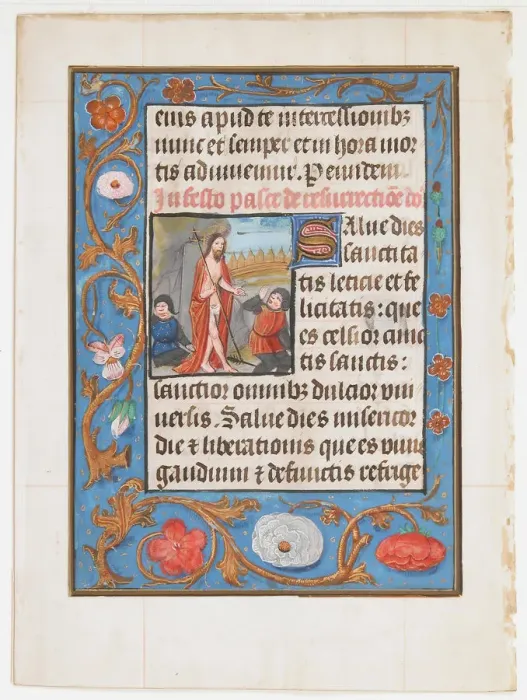 eius apud te intercessionibꝫ
nunc et semper et in hora mor
tis adiuvemur. Per eundem
In festo pasce de resurrectiōe do
Salue dies
sanctita
tis leticie et fe
licitatis: que
es celsior cunc
tis sanctis:
sanctior omnibꝫ dulcior uni
uersis. Salue dies misericor
die ⁊ liberationis que es viuis
gaudium ⁊ defunctis refrige